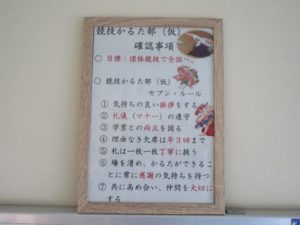 競技かるた部（仮）
確認事項
○ 目標：団体競技で全国へ。
○ 競技かるた部（仮）
セブン・ルール
① 気持ちの良い挨拶をする
② 礼儀（マナー）の遵守
③ 学業との両立を図る
④ 理由なき欠席は年３回まで
⑤ 札は一枚一枚丁寧に扱う
⑥ 場を清め、かるたができるこ
とに常に感謝の気持ちを持つ
⑦ 共に高め合い、仲間を大切に
する